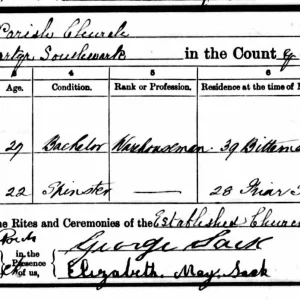 Parish Church
Martyr Southwark in the Count of
4 5 6
Age. Condition. Rank or Profession. Residence at the time of M
27 Bachelor Warehouseman 39
22 Spinster — 28 Friar
the Rites and Ceremonies of the Established Church
in the Presence of us,
George Sack
Elizabeth May Sack